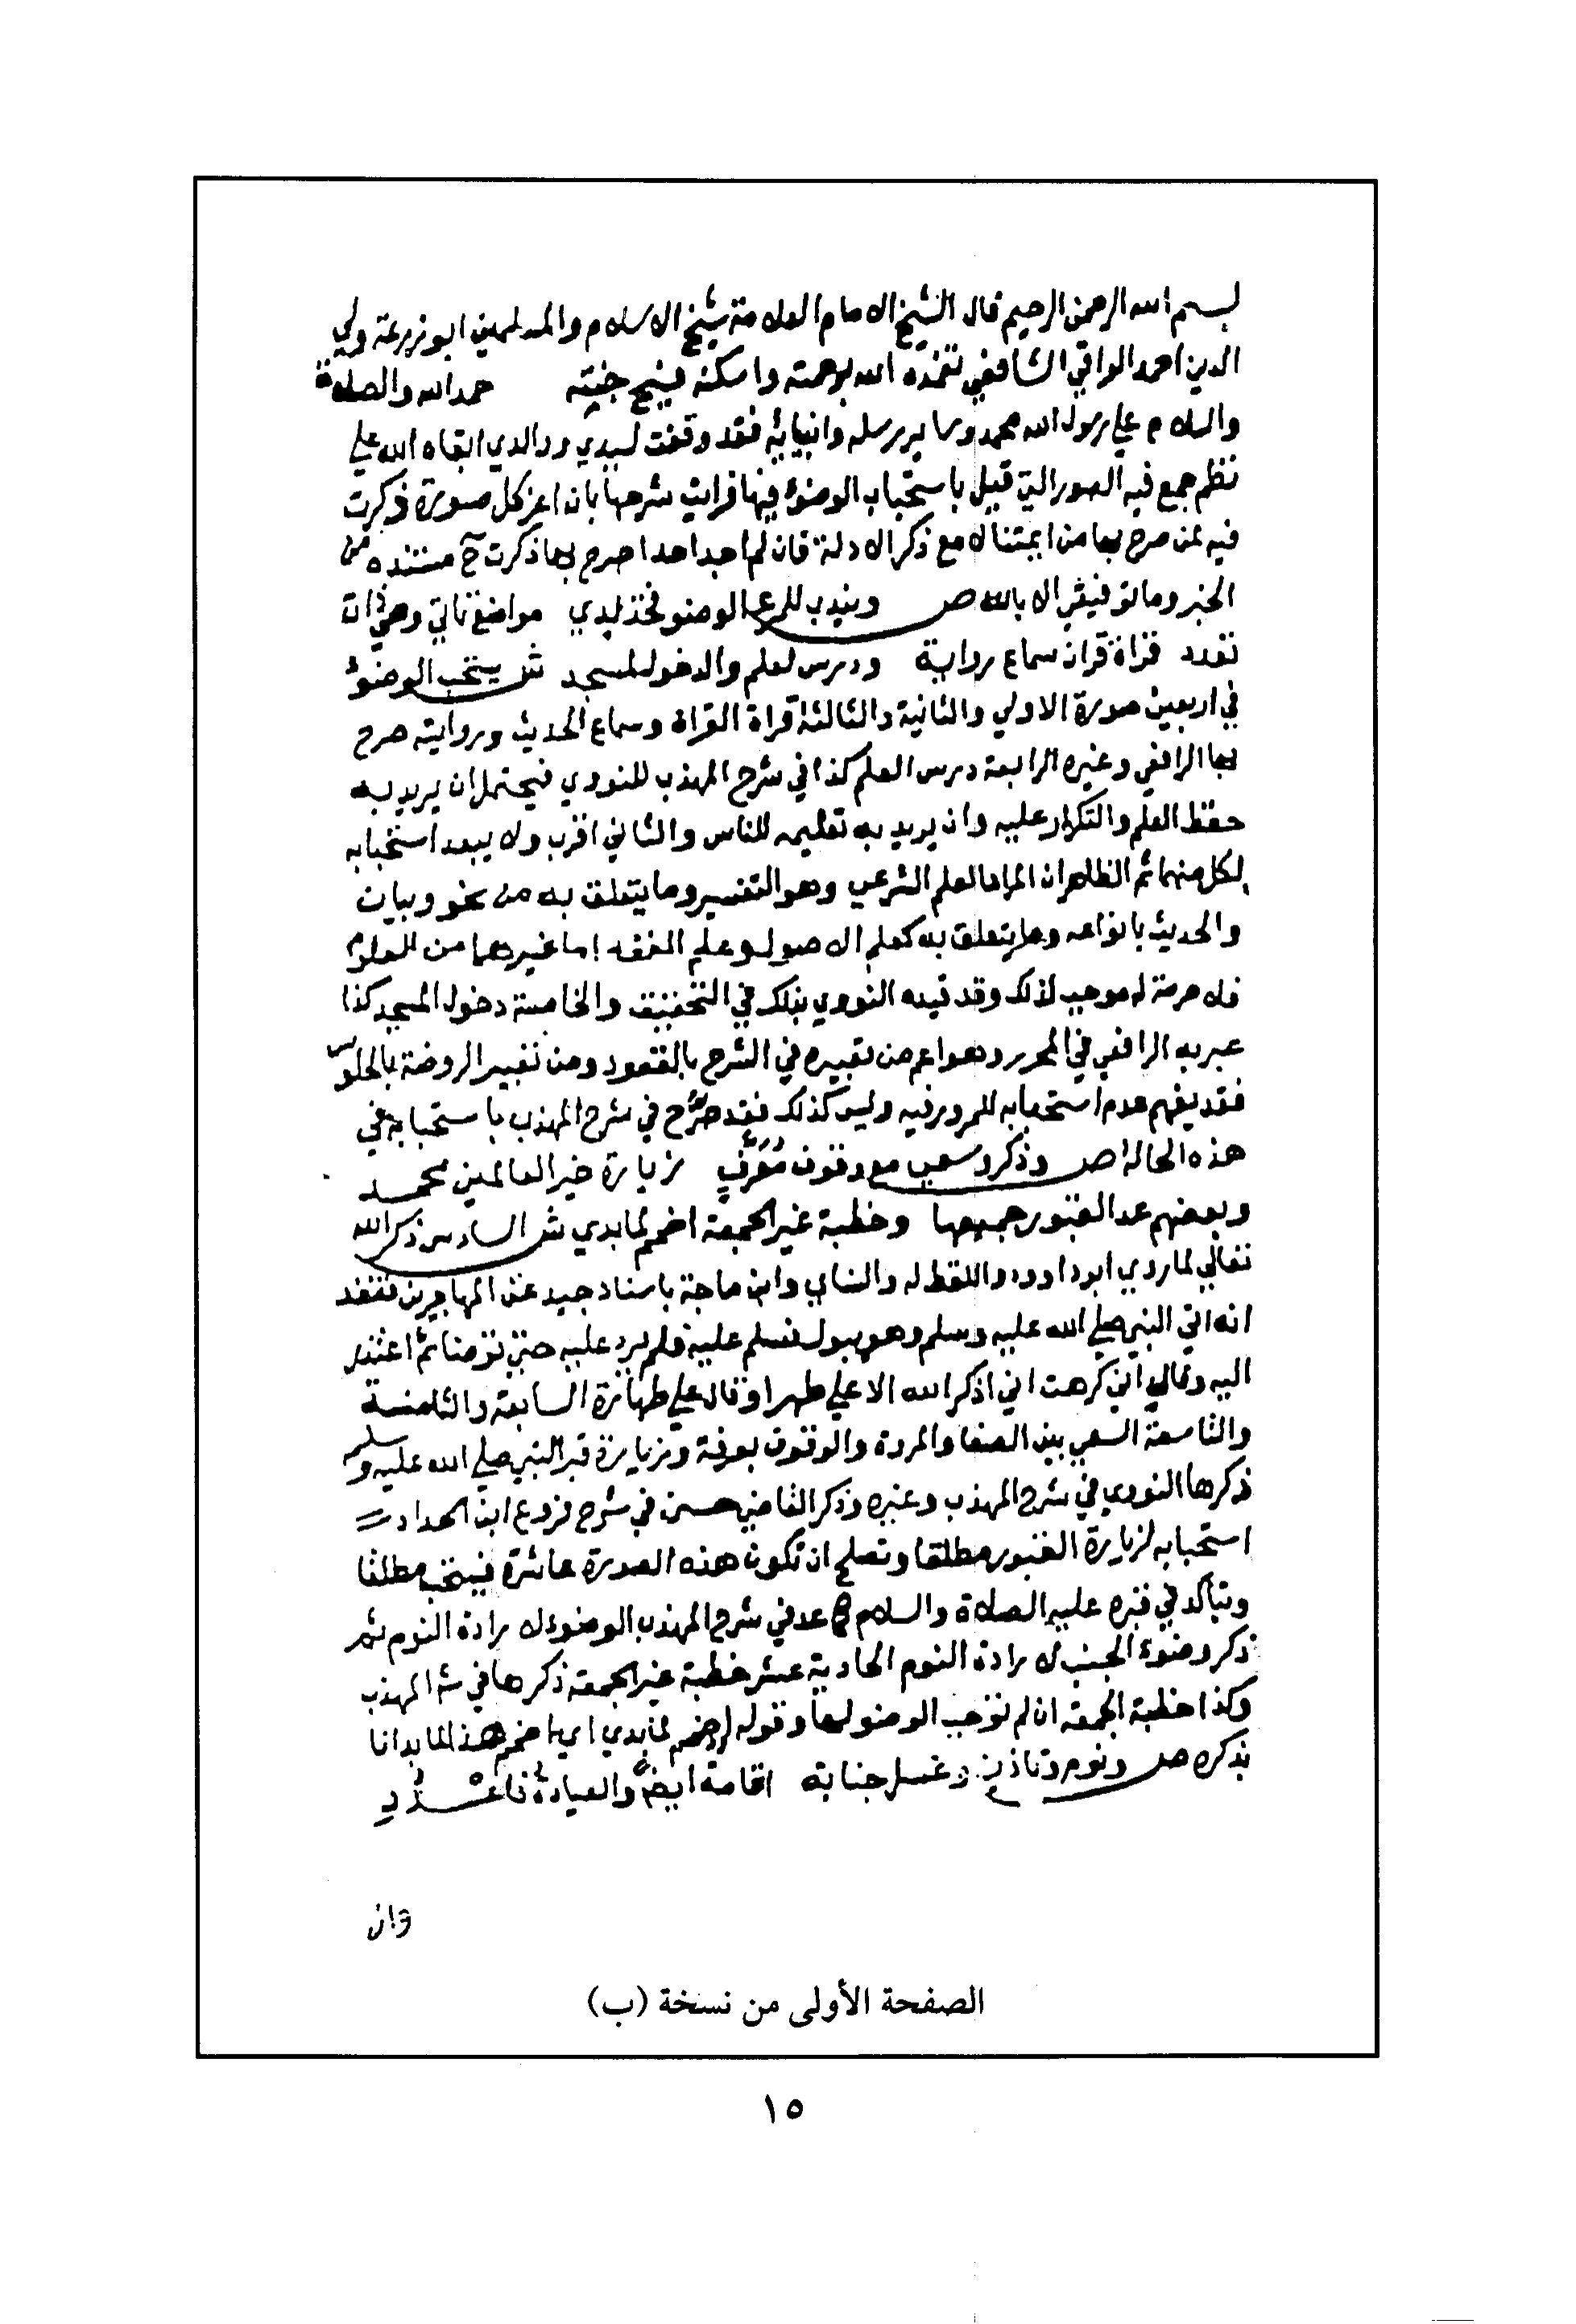 بسم الله الرحمن الرحيم قال الشيخ الامام العلامة شيخ الاسلام والمسلمين ابو زرعة ولي
الدين احمد العراقي الشافعي تغمده الله برحمته واسكنه فسيح جنته حمد الله والصلوة
والسلام علي رسول الله محمد وساير رسله وانبيايه فقد وقفت لسيدي ووالدي ابقاه الله علي
نظم جمع فيه الصور التي قيل باستحباب الوضوء فيها فرايت شرحها بان اعز كل صورة ذكرت
فيه لمن صرح بها من ايمتنا مع ذكر الادلة فان لم اجد احدا صرح بها ذكرت ح مستنده من
الخبر وما توفيقي الا بالله ص ويندب للمرء الوضو فخذ لدي مواضع تاتي وهي ذات
تعدد قراة قران سماع رواية ودرس لعلم والدخول لمسجد ش يستحب الوضوء
في اربعين صورة الاولي والثانية والثالثة قراة القران وسماع الحديث وروايته صرح
بها الرافعي وغيره الرابعة درس العلم كذا في شرح المهذب للنووي فيحتمل ان يريد به
حفظ العلم والتكرار عليه وان يريد به تعليمه للناس والثاني اقرب ولا يبعد استحبابه
لكل منهما ثم الظاهر ان المراد العلم الشرعي وهو التفسير وما يتعلق به من نحو وبيان
والحديث بانواعه وما يتعلق به كعلم الاصول وعلم الفقه اما غيرهما من العلوم
فلا حرمة له موجب لذلك وقد قيده النووي بذلك في التحقيق والخامسة دخول المسجد كذا
عبر به الرافعي في المحرر وهو اعم من تعبيره في الشرح بالقعود ومن تعبير الروضة بالجلوس
فقد يفهم عدم استحبابه للمرور فيه وليس كذلك فقد صرح في شرح المهذب باستحبابه في
هذه الحالة ص وذكر وسعي مع وقوف معرف زيارة خير العالمين محمد
وبعضهم عد القبور جميعها وخطبة غير الجمعة اضمم لما بدي ش السادس ذكر الله
تعالي لما روي ابو داوود واللفظ له والنساي وابن ماجة باسناد جيد عن المهاجر بن قنفذ
انه اتي النبي صلي الله عليه وسلم وهو يبول فسلم عليه فلم يرد عليه حتي توضا ثم اعتذر
اليه وقال اني كرهت اني اذكر الله الا علي طهر او قال علي طهارة السابعة والثامنة
والتاسعة السعي بين الصفا والمروة والوقوف بعرفة وزيارة قبر النبي صلي الله عليه وسلم
ذكرها النووي في شرح المهذب وغيره وذكر القاضي حسين في شرح فروع ابن الحداد
استحبابه لزيارة القبور مطلقا وتصلح ان تكون هذه الصورة عاشرة فيستحب مطلقا
ويتاكد في قبره عليه الصلاة والسلام عد في شرح المهذب الوضوء لارادة النوم ثم
ذكر وضوء الجنب لارادة النوم الحادية عشر خطبة غير الجمعة ذكرها في ش المهذب
وكذا خطبة الجمعة ان لم نوجب الوضو لها وقوله اضمم لما بدي اي اضمم هذا لما بدانا
بذكره ص ونوم وتاذين وغسل جنابة اقامة ايضا والعبادة فاعدد
وان
الصفحة الأولى من نسخة (ب)
١٥